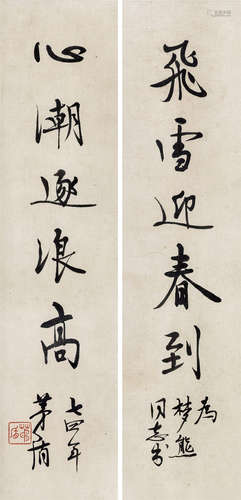 飛雪迎春到
為
梦熊
同志书
心潮逐浪高
七四年
茅盾